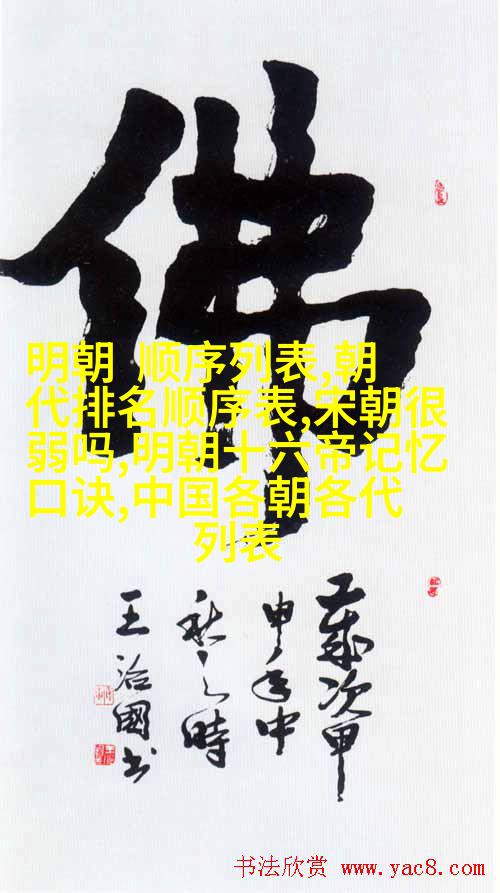 佛
明朝 顺序列表,朝
代排名顺序表,宋朝很
弱吗,明朝十六帝记忆
口诀,中国各朝各代
列表
岁次甲
申年中
秋之时
王治国书
书法欣赏 www.yac8.com